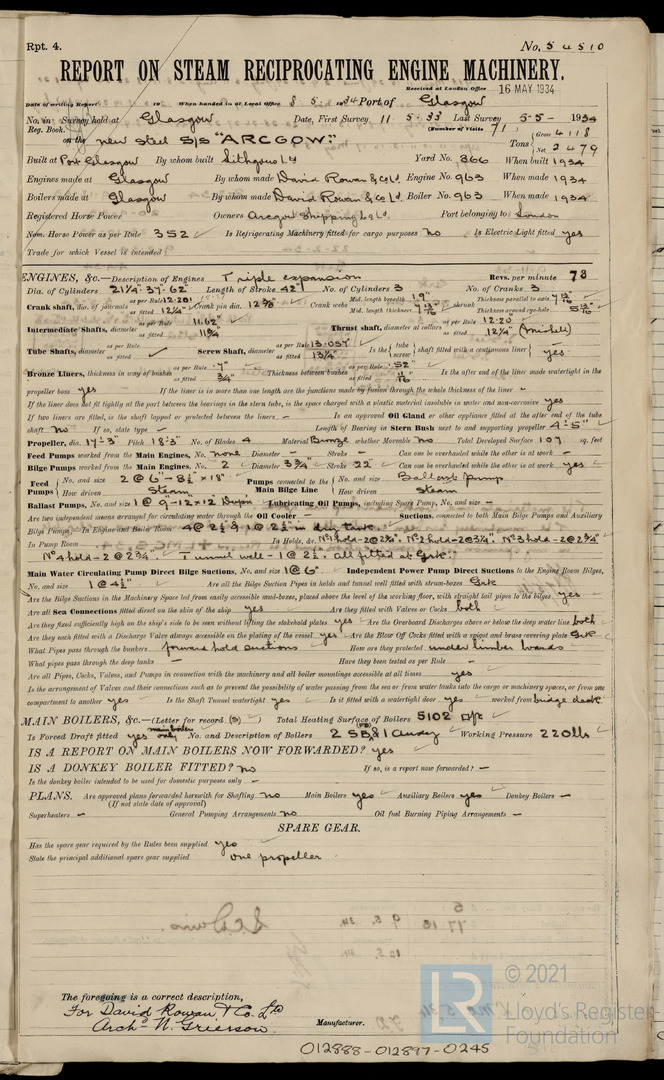 Rpt. 4. No. 54510
REPORT ON STEAM RECIPROCATING ENGINE MACHINERY.
Received at London Office 16 MAY 1934
Date of writing Report 19 When handed in at Local Office 8 5 1934 Port of Glasgow
No. in Survey held at Glasgow Date, First Survey 11 5 33 Last Survey 5-5- 1934
Reg. Book. (Number of Visits 71)
on the new steel S/S "ARCGOW." Tons { Gross 4118 Net 2479
Built at Port Glasgow By whom built Lithgows Ld Yard No. 866 When built 1934
Engines made at Glasgow By whom made David Rowan & Co Ld Engine No. 963 When made 1934
Boilers made at Glasgow By whom made David Rowan & Co Ld Boiler No. 963 When made 1934
Registered Horse Power Owners Arcgow Shipping Co Ld Port belonging to London
Nom. Horse Power as per Rule 352 Is Refrigerating Machinery fitted for cargo purposes No Is Electric Light fitted yes
Trade for which Vessel is intended
ENGINES, &c.—Description of Engines Triple expansion Revs. per minute 73
Dia. of Cylinders 21¼-37-62" Length of Stroke 42" No. of Cylinders 3 No. of Cranks 3
Crank shaft, dia. of journals as per Rule 12.201 as fitted 12¼" Crank pin dia. 12⅜" Crank webs Mid. length breadth 19" Mid. length thickness 7 13/16" shrunk Thickness parallel to axis 7 13/16" Thickness around eye-hole 5 13/16"
Intermediate Shafts, diameter as per Rule 11.62" as fitted 11¾" Thrust shaft, diameter at collars as per Rule 12.20 as fitted 12¼" (Michell)
Tube Shafts, diameter as per Rule as fitted Screw Shaft, diameter as per Rule 13.057 as fitted 13¼" Is the { tube screw } shaft fitted with a continuous liner { yes
Bronze Liners, thickness in way of bushes as per Rule .7" as fitted ¾" Thickness between bushes as per Rule .52" as fitted 11/16" Is the after end of the liner made watertight in the
propeller boss yes If the liner is in more than one length are the junctions made by fusion through the whole thickness of the liner -
If the liner does not fit tightly at the part between the bearings in the stern tube, is the space charged with a plastic material insoluble in water and non-corrosive yes
If two liners are fitted, is the shaft lapped or protected between the liners - Is an approved Oil Gland or other appliance fitted at the after end of the tube
shaft No If so, state type - Length of Bearing in Stern Bush next to and supporting propeller 4'-5"
Propeller, dia. 17'-3" Pitch 18'-3" No. of Blades 4 Material Bronze whether Moveable No Total Developed Surface 107 sq. feet
Feed Pumps worked from the Main Engines, No. none Diameter - Stroke - Can one be overhauled while the other is at work -
Bilge Pumps worked from the Main Engines, No. 2 Diameter 3¾" Stroke 22" Can one be overhauled while the other is at work yes
Feed Pumps { No. and size 2 @ 6"-8½"x18" How driven Steam Pumps connected to the Main Bilge Line { No. and size Ballast pump How driven Steam
Ballast Pumps, No. and size 1 @ 9-12x12 Duplx Lubricating Oil Pumps, including Spare Pump, No. and size -
Are two independent means arranged for circulating water through the Oil Cooler - Suctions, connected to both Main Bilge Pumps and Auxiliary
Bilge Pumps;—In Engine and Boiler Room 4 @ 2½" & 1 @ 2½ in dry tank.
In Pump Room In Holds, &c. No 1 hold-2@2¾". No 2 hold-2@3¼". No 3 hold-2@2¾"
No 4 hold-2 @ 2¾". Tunnel well-1 @ 2½". all fitted at Grk.
Main Water Circulating Pump Direct Bilge Suctions, No. and size 1 @ 6" Independent Power Pump Direct Suctions to the Engine Room Bilges,
No. and size 1 @ 4½" Are all the Bilge Suction Pipes in holds and tunnel well fitted with strum-boxes Grk
Are the Bilge Suctions in the Machinery Space led from easily accessible mud-boxes, placed above the level of the working floor, with straight tail pipes to the bilges yes
Are all Sea Connections fitted direct on the skin of the ship yes Are they fitted with Valves or Cocks both
Are they fixed sufficiently high on the ship's side to be seen without lifting the stokehold plates yes Are the Overboard Discharges above or below the deep water line both
Are they each fitted with a Discharge Valve always accessible on the plating of the vessel yes Are the Blow Off Cocks fitted with a spigot and brass covering plate Grk
What Pipes pass through the bunkers forward hold suctions How are they protected under limber boards
What pipes pass through the deep tanks - Have they been tested as per Rule -
Are all Pipes, Cocks, Valves, and Pumps in connection with the machinery and all boiler mountings accessible at all times yes
Is the arrangement of Valves and their connections such as to prevent the possibility of water passing from the sea or from water tanks into the cargo or machinery spaces, or from one
compartment to another yes Is the Shaft Tunnel watertight yes Is it fitted with a watertight door yes worked from bridge deck
MAIN BOILERS, &c.—(Letter for record (S)) Total Heating Surface of Boilers 5102
Is Forced Draft fitted yes main boilers only No. and Description of Boilers 2 SB, & 1 Auxy Working Pressure 220 lbs
IS A REPORT ON MAIN BOILERS NOW FORWARDED? yes
IS A DONKEY BOILER FITTED? No If so, is a report now forwarded? -
Is the donkey boiler intended to be used for domestic purposes only -
PLANS. Are approved plans forwarded herewith for Shafting No Main Boilers yes Auxiliary Boilers yes Donkey Boilers -
(If not state date of approval)
Superheaters - General Pumping Arrangements No Oil fuel Burning Piping Arrangements -
SPARE GEAR.
Has the spare gear required by the Rules been supplied yes
State the principal additional spare gear supplied one propeller.
The foregoing is a correct description,
For David Rowan & Co. Ltd
Archd N. Grierson. Manufacturer.
© 2021
LR
Lloyd's Register
Foundation
012888-012897-0245